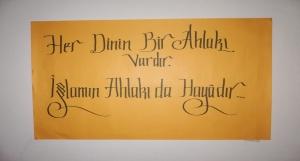 Her Dinin Bir Ahlakı
Vardır.
İslamın Ahlakı da Hayâdır...